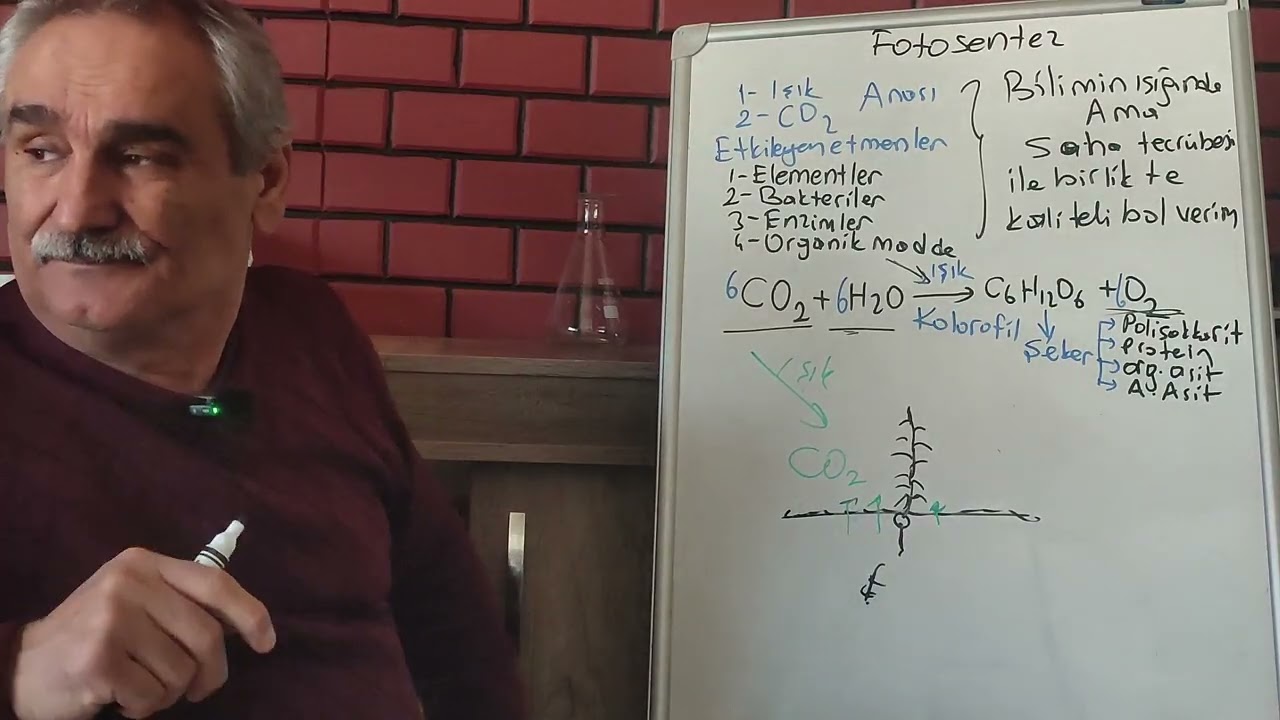 Fotosentez
1- Işık Anası
2- CO2
Etkileyen etmenler
1- Elementler
2- Bakteriler
3- Enzimler
4- Organik madde
Bilimin ışığında
Ama
Saha tecrübesi
ile birlikte
kaliteli bol verim
6CO2 + 6H2O → C6H12O6 + 6O2
Işık
Kolorofil
Şeker
Polisakkarit
Protein
org. asit
A. Asit
Işık
CO2